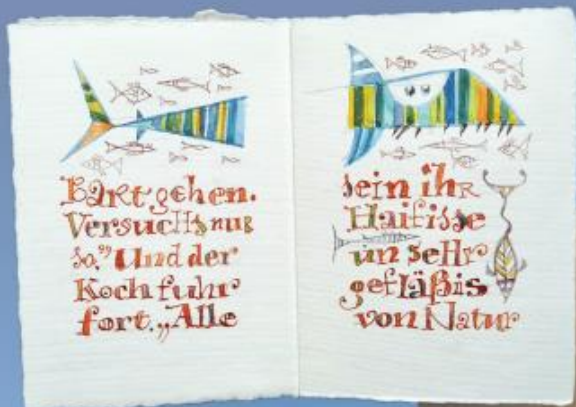 Bart gehen.
Versuchts nur
so.” Und der
Koch fuhr
fort. „Alle
sein ihr
Haifisse
un sehr
gefläßis
von Natur